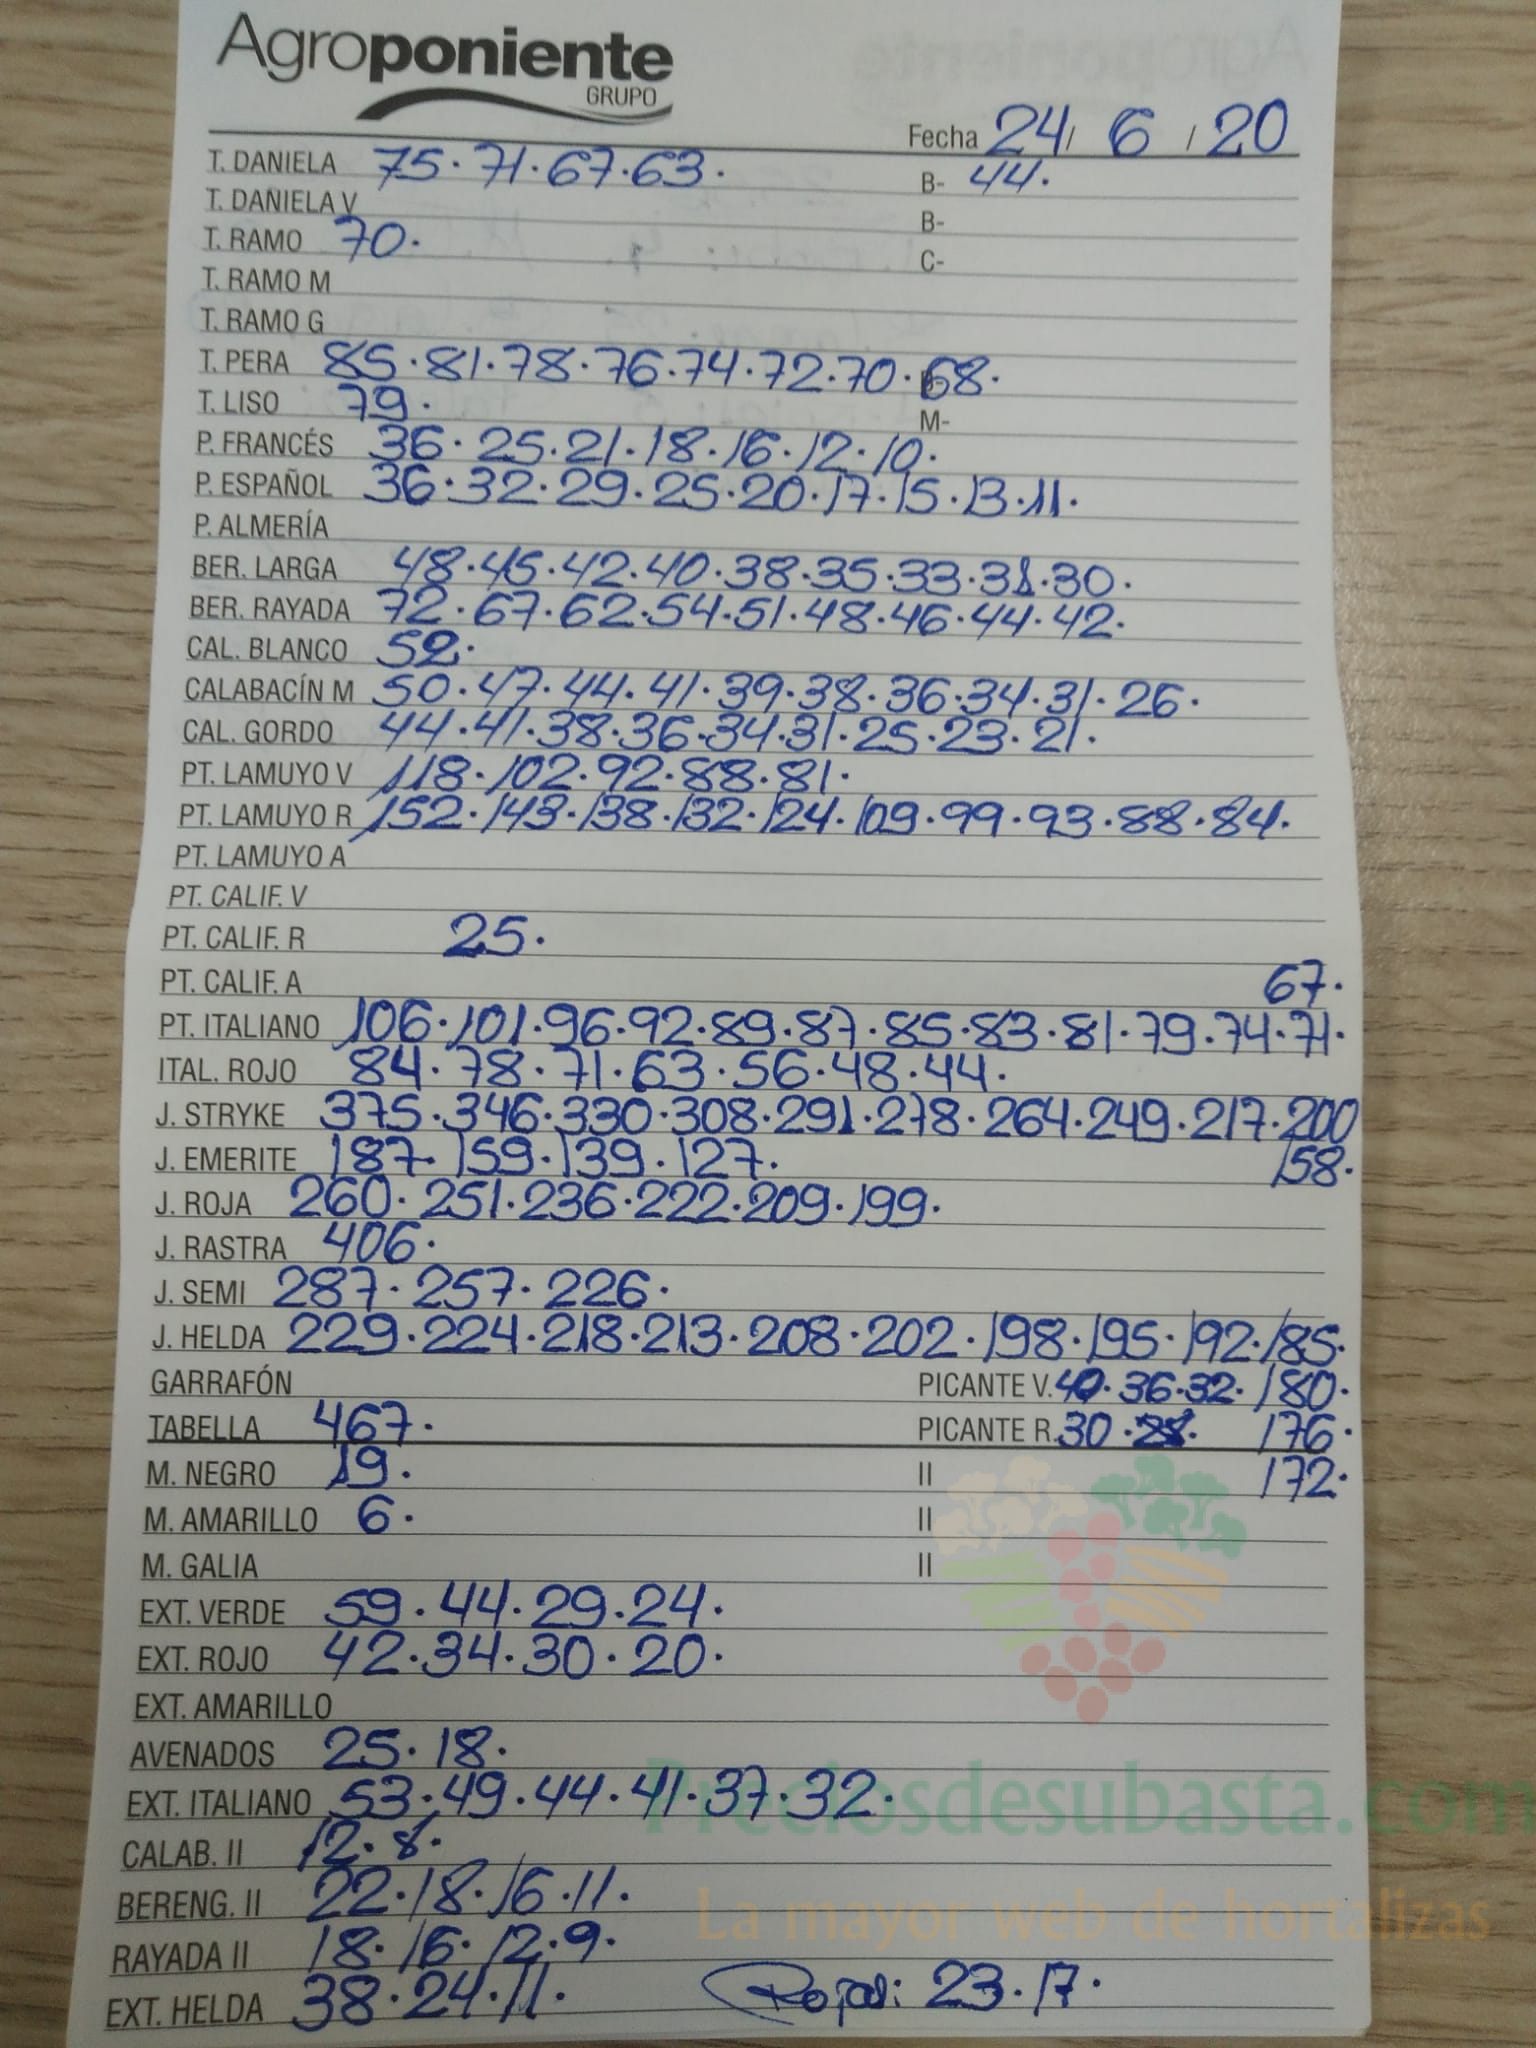 Agroponiente
GRUPO
Fecha 24/ 6 / 20
T. DANIELA 75·71·67·63· B- 44·
T. DANIELA V B-
T. RAMO 70· C-
T. RAMO M
T. RAMO G
T. PERA 85·81·78·76·74·72·70·68·
T. LISO 79· M-
P. FRANCÉS 36·25·21·18·16·12·10·
P. ESPAÑOL 36·32·29·25·20·17·15·13·11·
P. ALMERÍA
BER. LARGA 48·45·42·40·38·35·33·31·30·
BER. RAYADA 72·67·62·54·51·48·46·44·42·
CAL. BLANCO 52·
CALABACÍN M 50·47·44·41·39·38·36·34·31·26·
CAL. GORDO 44·41·38·36·34·31·25·23·21·
PT. LAMUYO V 118·102·92·88·81·
PT. LAMUYO R 152·143·138·132·124·109·99·93·88·84·
PT. LAMUYO A
PT. CALIF. V
PT. CALIF. R 25·
PT. CALIF. A 67·
PT. ITALIANO 106·101·96·92·89·87·85·83·81·79·74·71·
ITAL. ROJO 84·78·71·63·56·48·44·
J. STRYKE 375·346·330·308·291·278·264·249·217·200
J. EMERITE 187·159·139·127· 158·
J. ROJA 260·251·236·222·209·199·
J. RASTRA 406·
J. SEMI 287·257·226·
J. HELDA 229·224·218·213·208·202·198·195·192·185·
GARRAFÓN PICANTE V. 40·36·32· 180·
TABELLA 467· PICANTE R. 30· 176·
M. NEGRO 19· II 172·
M. AMARILLO 6· II
M. GALIA II
EXT. VERDE 59·44·29·24·
EXT. ROJO 42·34·30·20·
EXT. AMARILLO
AVENADOS 25·18·
EXT. ITALIANO 53·49·44·41·37·32·
Preciosdesubasta.com
CALAB. II 12·8·
BERENG. II 22·18·16·11·
La mayor web de hortalizas
RAYADA II 18·16·12·9·
EXT. HELDA 38·24·11· Rojas: 23·17·